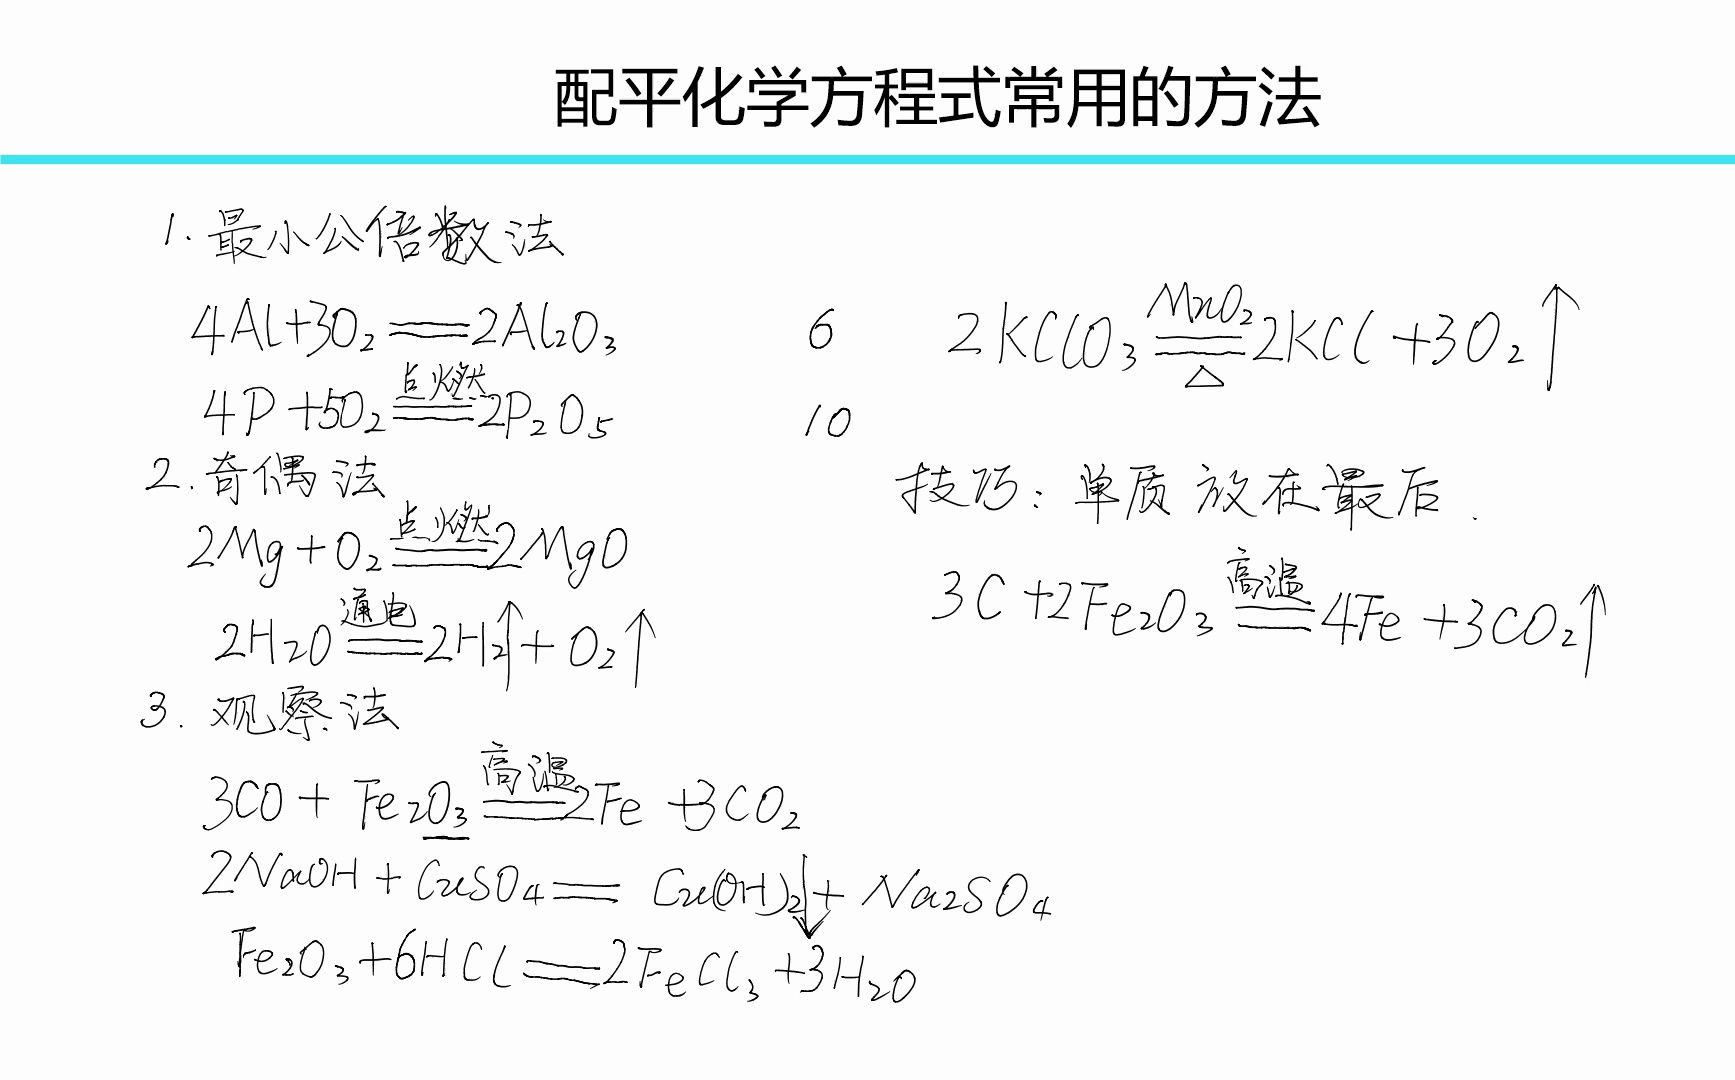 配平化学方程式常用的方法
1. 最小公倍数法
4Al+3O₂══2Al₂O₃ 6
4P+5O₂ 点燃══ 2P₂O₅ 10
2. 奇偶法
2Mg+O₂ 点燃══ 2MgO
2H₂O 通电══ 2H₂↑+O₂↑
3. 观察法
3CO+Fe₂O₃ 高温══ 2Fe+3CO₂
2NaOH+CuSO₄══Cu(OH)₂↓+Na₂SO₄
Fe₂O₃+6HCl══2FeCl₃+3H₂O
2KClO₃ MnO₂══△ 2KCl+3O₂↑
技巧：单质放在最后.
3C+2Fe₂O₃ 高温══ 4Fe+3CO₂↑